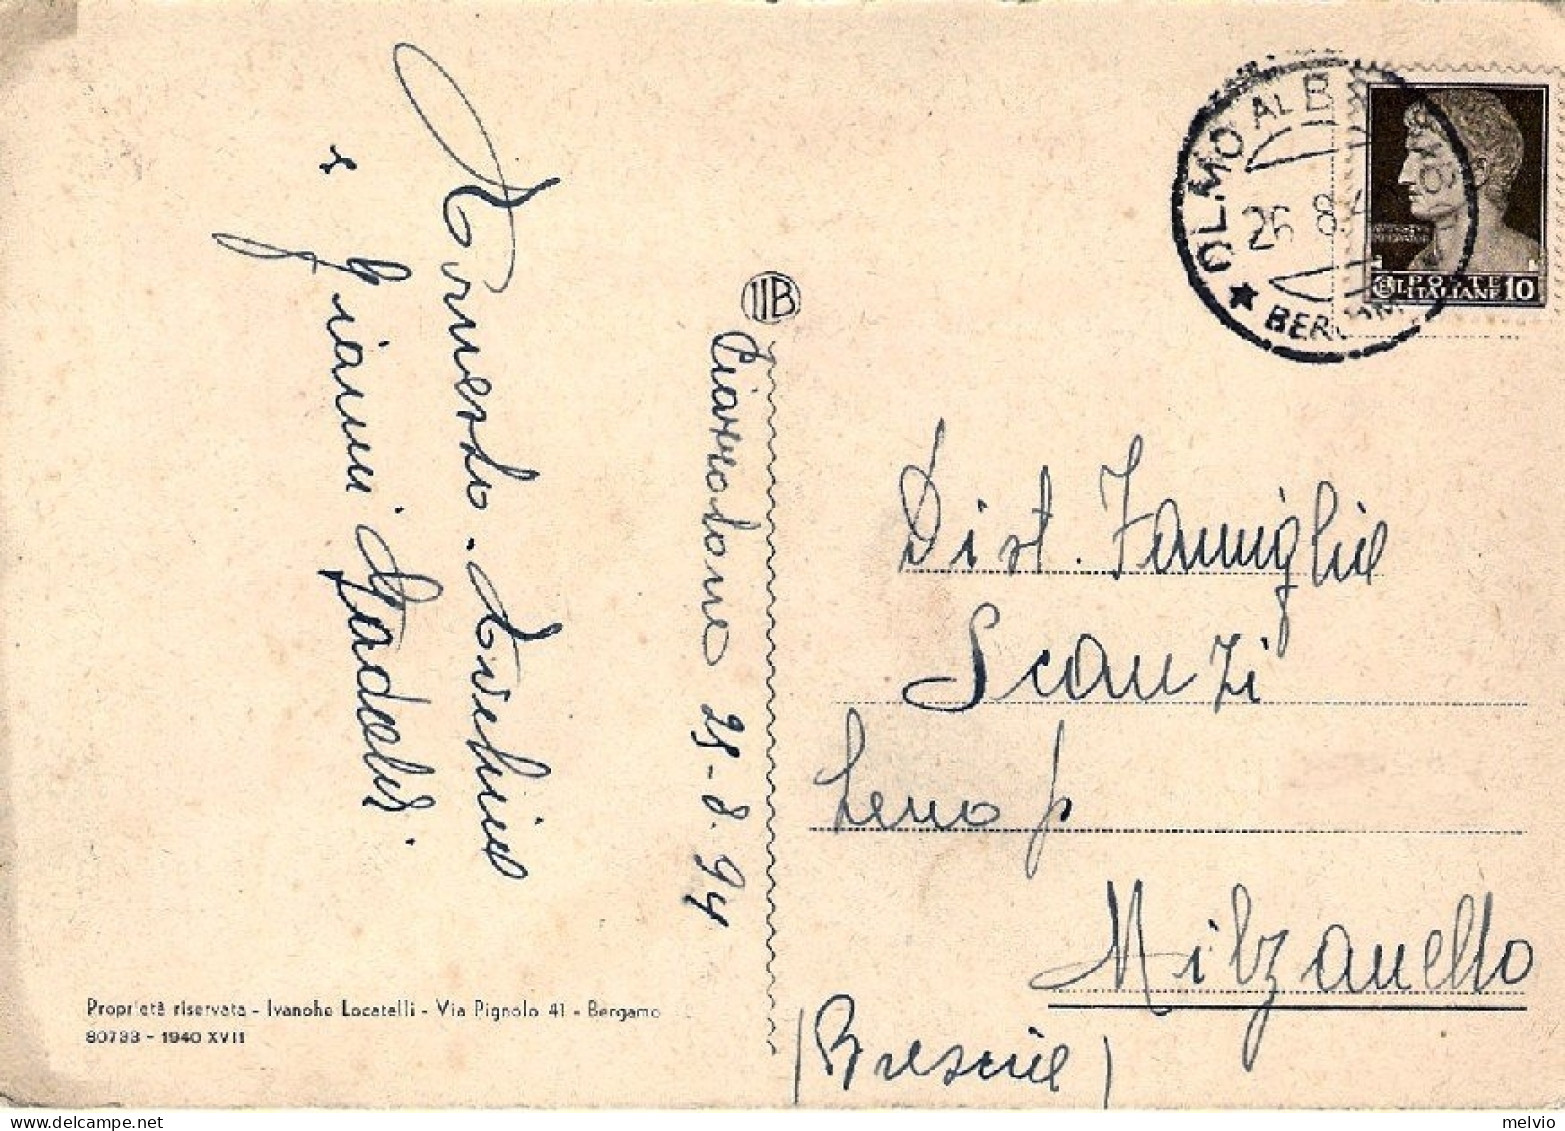 OLMO AL BREMBO
26 8
★ BERGAMO
POSTE
ITALIANE 10
IIB
Piazzatorre 25-8.94
Ernesto. Evelina
e Gianni
Dist. Famiglie
Scanzi
Leno p
Milzanello
(Brescia)
Proprietà riservata - Ivanohe Locatelli - Via Pignolo 41 - Bergamo
80733 - 1940 XVII
melvio